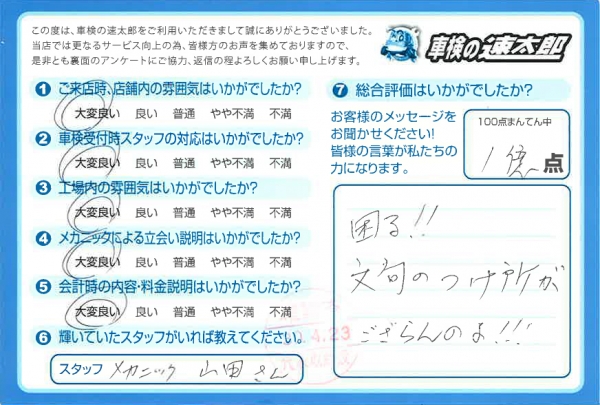 この度は、車検の速太郎をご利用いただきまして誠にありがとうございました。
当店では更なるサービス向上の為、皆様方のお声を集めておりますので、
是非とも裏面のアンケートにご協力、返信の程よろしくお願い申し上げます。
車検の速太郎
1 ご来店時、店舗内の雰囲気はいかがでしたか?
大変良い 良い 普通 やや不満 不満
2 車検受付時スタッフの対応はいかがでしたか?
大変良い 良い 普通 やや不満 不満
3 工場内の雰囲気はいかがでしたか?
大変良い 良い 普通 やや不満 不満
4 メカニックによる立会い説明はいかがでしたか?
大変良い 良い 普通 やや不満 不満
5 会計時の内容・料金説明はいかがでしたか?
大変良い 良い 普通 やや不満 不満
6 輝いていたスタッフがいれば教えてください。
スタッフ メカニック 山田さん
4.23
7 総合評価はいかがでしたか?
お客様のメッセージを
お聞かせください!
皆様の言葉が私たちの
力になります。
100点まんてん中
1億点
困る!!
文句のつけ所が
ござらんのよ!!!